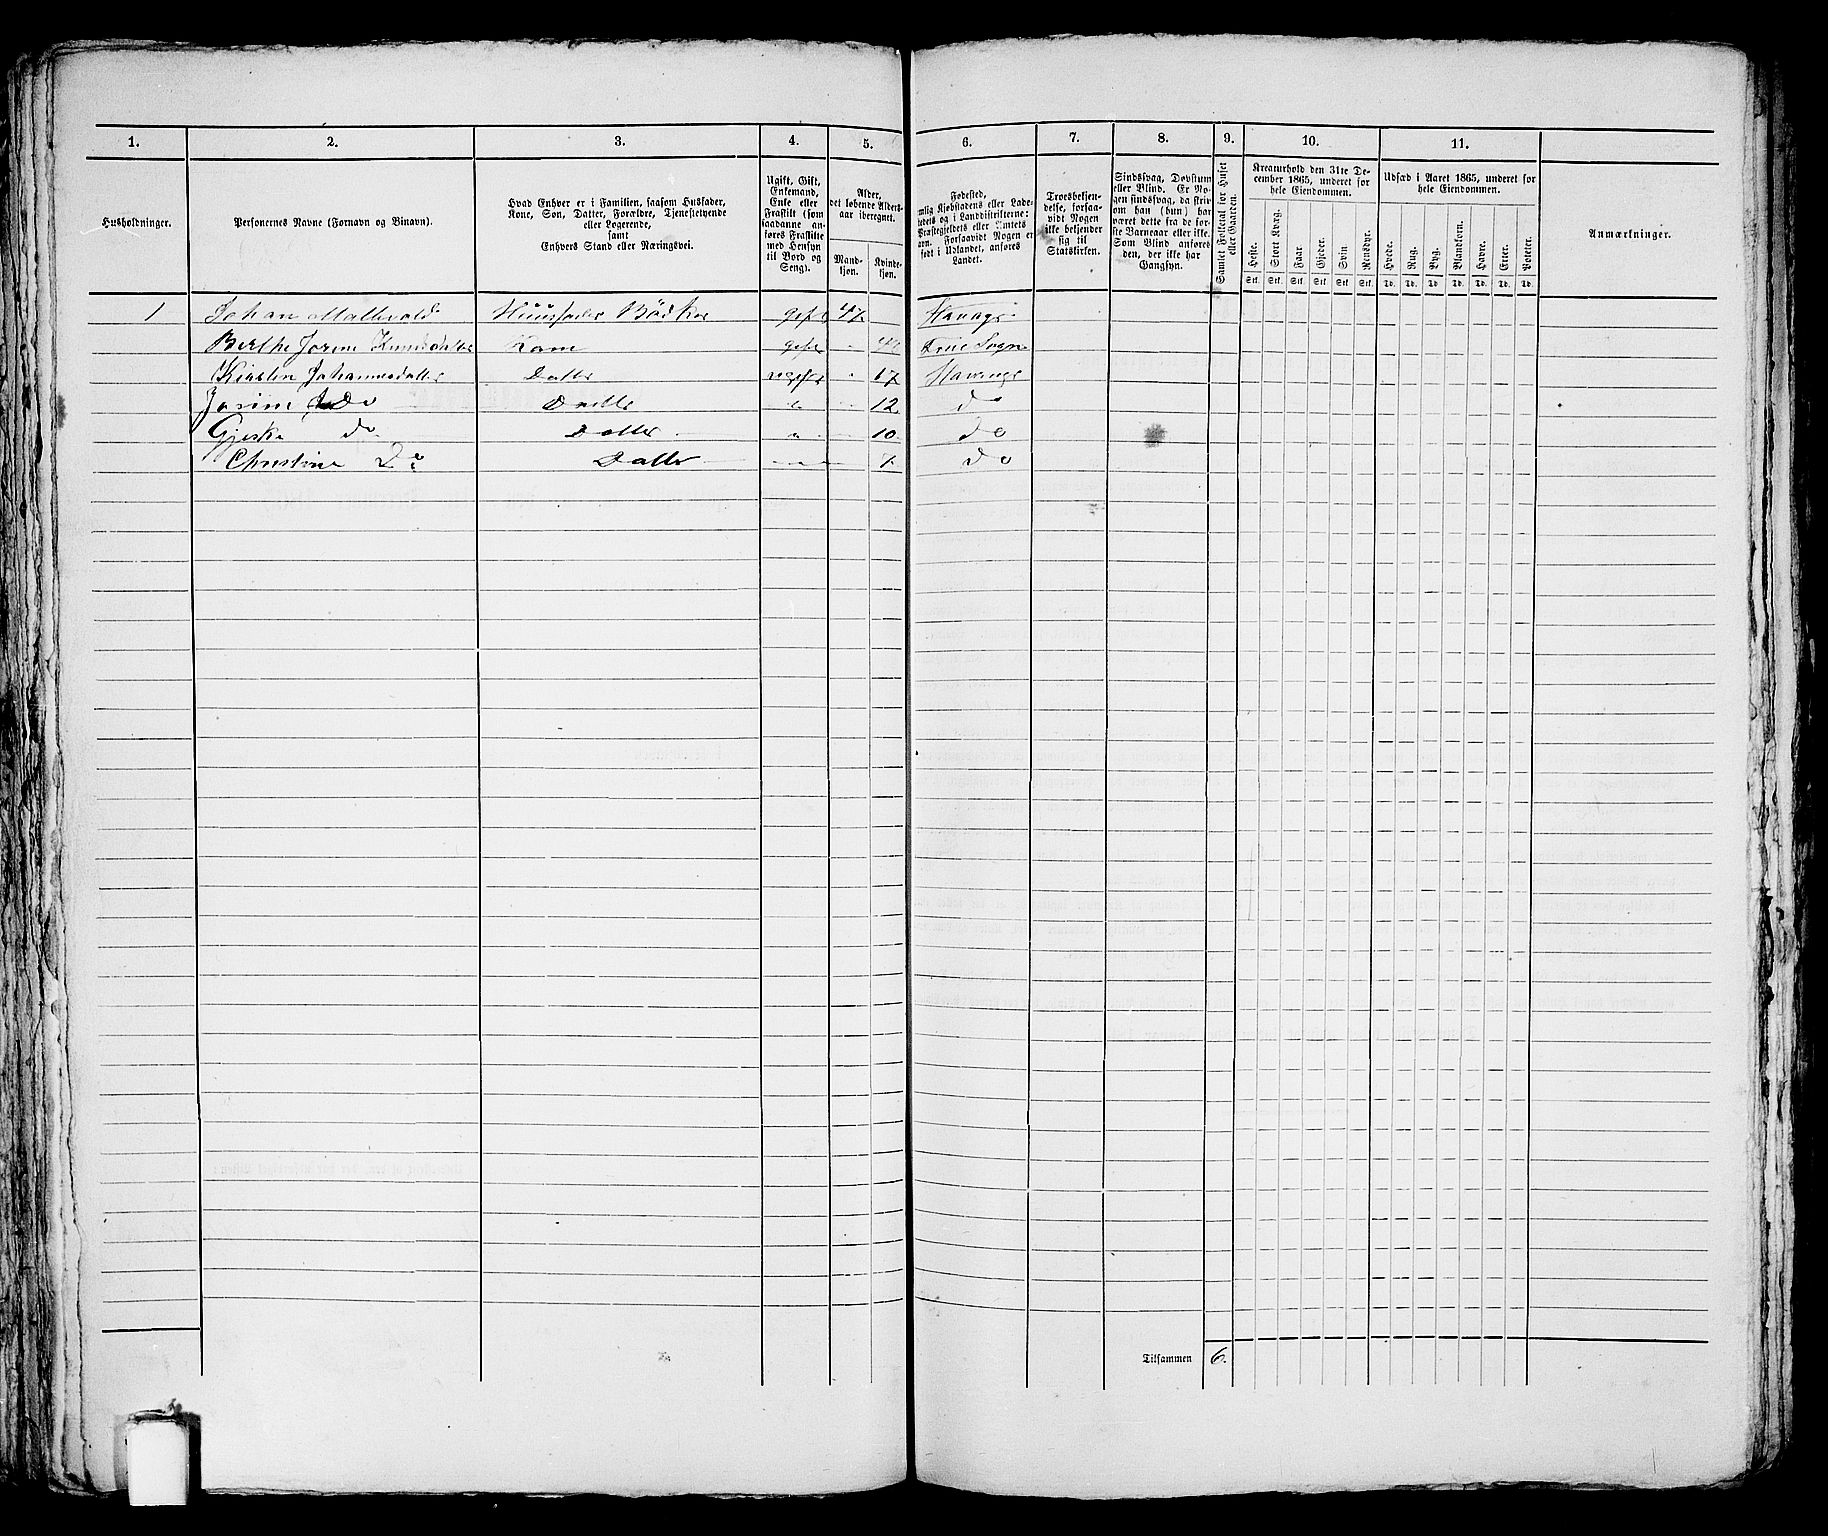 1. 2. 3. 4. 5. 6. 7. 8. 9. 10. 11.
Husholdninger.
Personernes Navne (Fornavn og Binavn).
Hvad Enhver er i Familien, saasom Husfader,
Kone, Søn, Datter, Forældre, Tjenestetyende
eller Logerende,
samt
Enhvers Stand eller Næringsvei.
Ugift, Gift,
Enkemand,
Enke eller
Fraskilt (som
saadanne an-
føres Fraskilte
med Hensyn
til Bord og
Seng).
Alder,
det løbende Alders-
aar iberegnet.
Mand-
kjøn.
Kvinde-
kjøn.
Fødested,
nlig Kjøbstadens eller Lade-
stedets og i Landdistrikterne:
Præstegjeldets eller Amtets
avn. Forsaavidt Nogen er
født i Udlandet, anføres
Landet.
Troesbekjen-
delse, forsaa-
vidt Nogen
ikke bekjender
sig til
Statskirken.
Sindssvag, Døvstum
eller Blind. Er No-
gen sindssvag, da skriv
om han (hun) har
været dette fra de før-
ste Barneaar eller ikke.
Som Blind anføres
den, der ikke har
Gangsyn.
Samlet Folketal for Huset
eller Gaarden.
Kreaturhold den 31te De-
cember 1865, underet for
hele Eiendommen.
Heste. Stort Kvæg. Faar. Gjeder. Svin Rensdyr.
Stk. Stk. Stk. Stk. Stk Stk.
Udsæd i Aaret 1865, underet for
hele Eiendommen.
Hvede. Rug. Byg. Blandkorn. Havre. Erter. Poteter.
Td. Td. Td. Td. Td. Td. Td.
Anmærkninger.
1 Johan Huusfader Bödker gift 47
Berthe Jorine Knudsdatter Kone gift Sogn
Kirsten Johannesdatter Datter ugift 17
Jorine Do Datter " 12 do
Do Datter " 10 do
Christine Do Datter " 7 do
Tilsammen 6.